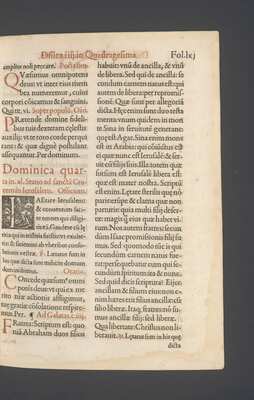 Dñica iiij in Quadragesima. Fol. lxj
amplius noli peccare. Postcõm̃.
QVæsumus omnipotens
deus: vt inter eius mem
bra numeremur, cuius
corpori cõicamus & sanguini.
Qui te. vi. Super pp̃lm. Oro.
PRætende domine fideli-
bus tuis dexteram cęlestis
auxilij: vt te toto corde perqui
rant: & quæ dignè postulant
assequantur. Per dominum.
Dominica quar-
ta in. xl. Statio ad sanctã Cru-
cem in Ierusalem. Officium.
LAEtare Ierusalem:
& conuentum faci-
te omnes qui diligi-
tis eã.
vt
bus vestræ. Ps. Lætatus sum in
his quæ dicta sunt mihi: in domum
domini ibimus. Oratio.
COncede quæsumus omni
potens deus: vt qui ex me
rito nrę actionis affligimur,
tuæ gratię cõsolatione respire-
mus. Per. Ad Galatas
FRatres: Scriptum est: quo-
niã Abraham duos filios
habuit: vnũ de ancilla, & vnũ
de libera. Sed qui de ancilla: se
cundum carnem natus est: qui
autem de libera: per repromissi-
onẽ. Quæ sunt per allegoriã
dicta. Hęc enim sunt duo testa
menta. Vnum quidem in mon
te Syna in seruitutem generãs:
quę est Agar. Sina enim mons
est in Arabia: qui coniunctus est
ei quæ nunc est Ierusalẽ: & ser-
uit cũ filijs suis. Illa autẽ quæ
sursum est Ierusalẽ, libera est:
quæ est mater nostra. Scriptũ
est enim. Lętare sterilis quæ nõ
paris: erumpe & clama quę non
parturis: quia multi filij deser-
tæ: magis q̃ eius quæ habet vi-
rum. Nos autẽ fratres: secun-
dũm Isaac promissionis filij su-
mus. Sed quomodo tũc is qui
secundum carnem natus fue-
rat: persequebatur eum qui se-
cundum spiritũ: ita & nunc.
Sed quid dicit scriptura? Eijce
ancillam & filium eius: non e-
nim hæres erit filius ancillæ: cũ
filio liberæ. Itaq̃ fratres: nõ su-
mus ancillæ filij: sed liberæ.
Qua libertate: Christus nos li-
berauit. Lętatus sum in his quę
dicta